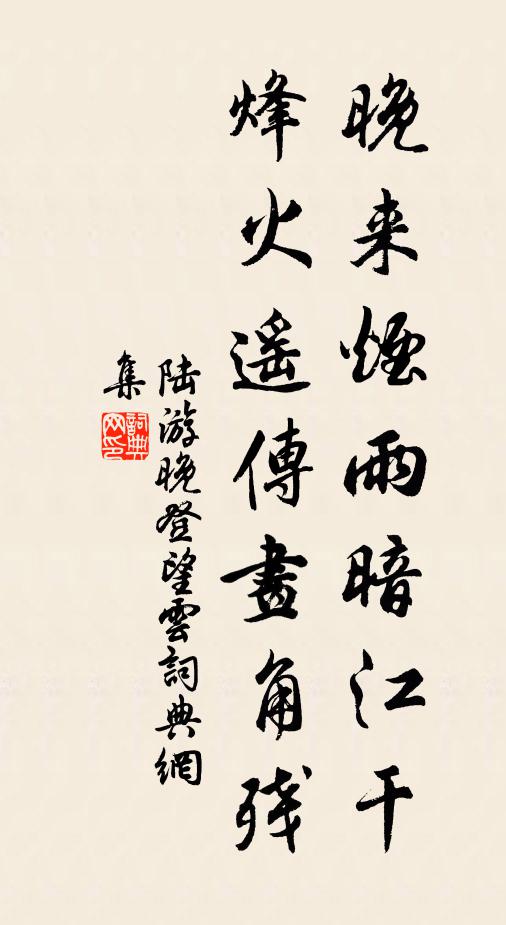 晚来煙雨暗江干
烽火遥傳畫角残
陆游晚登望雲詞典網
集
詞典网印